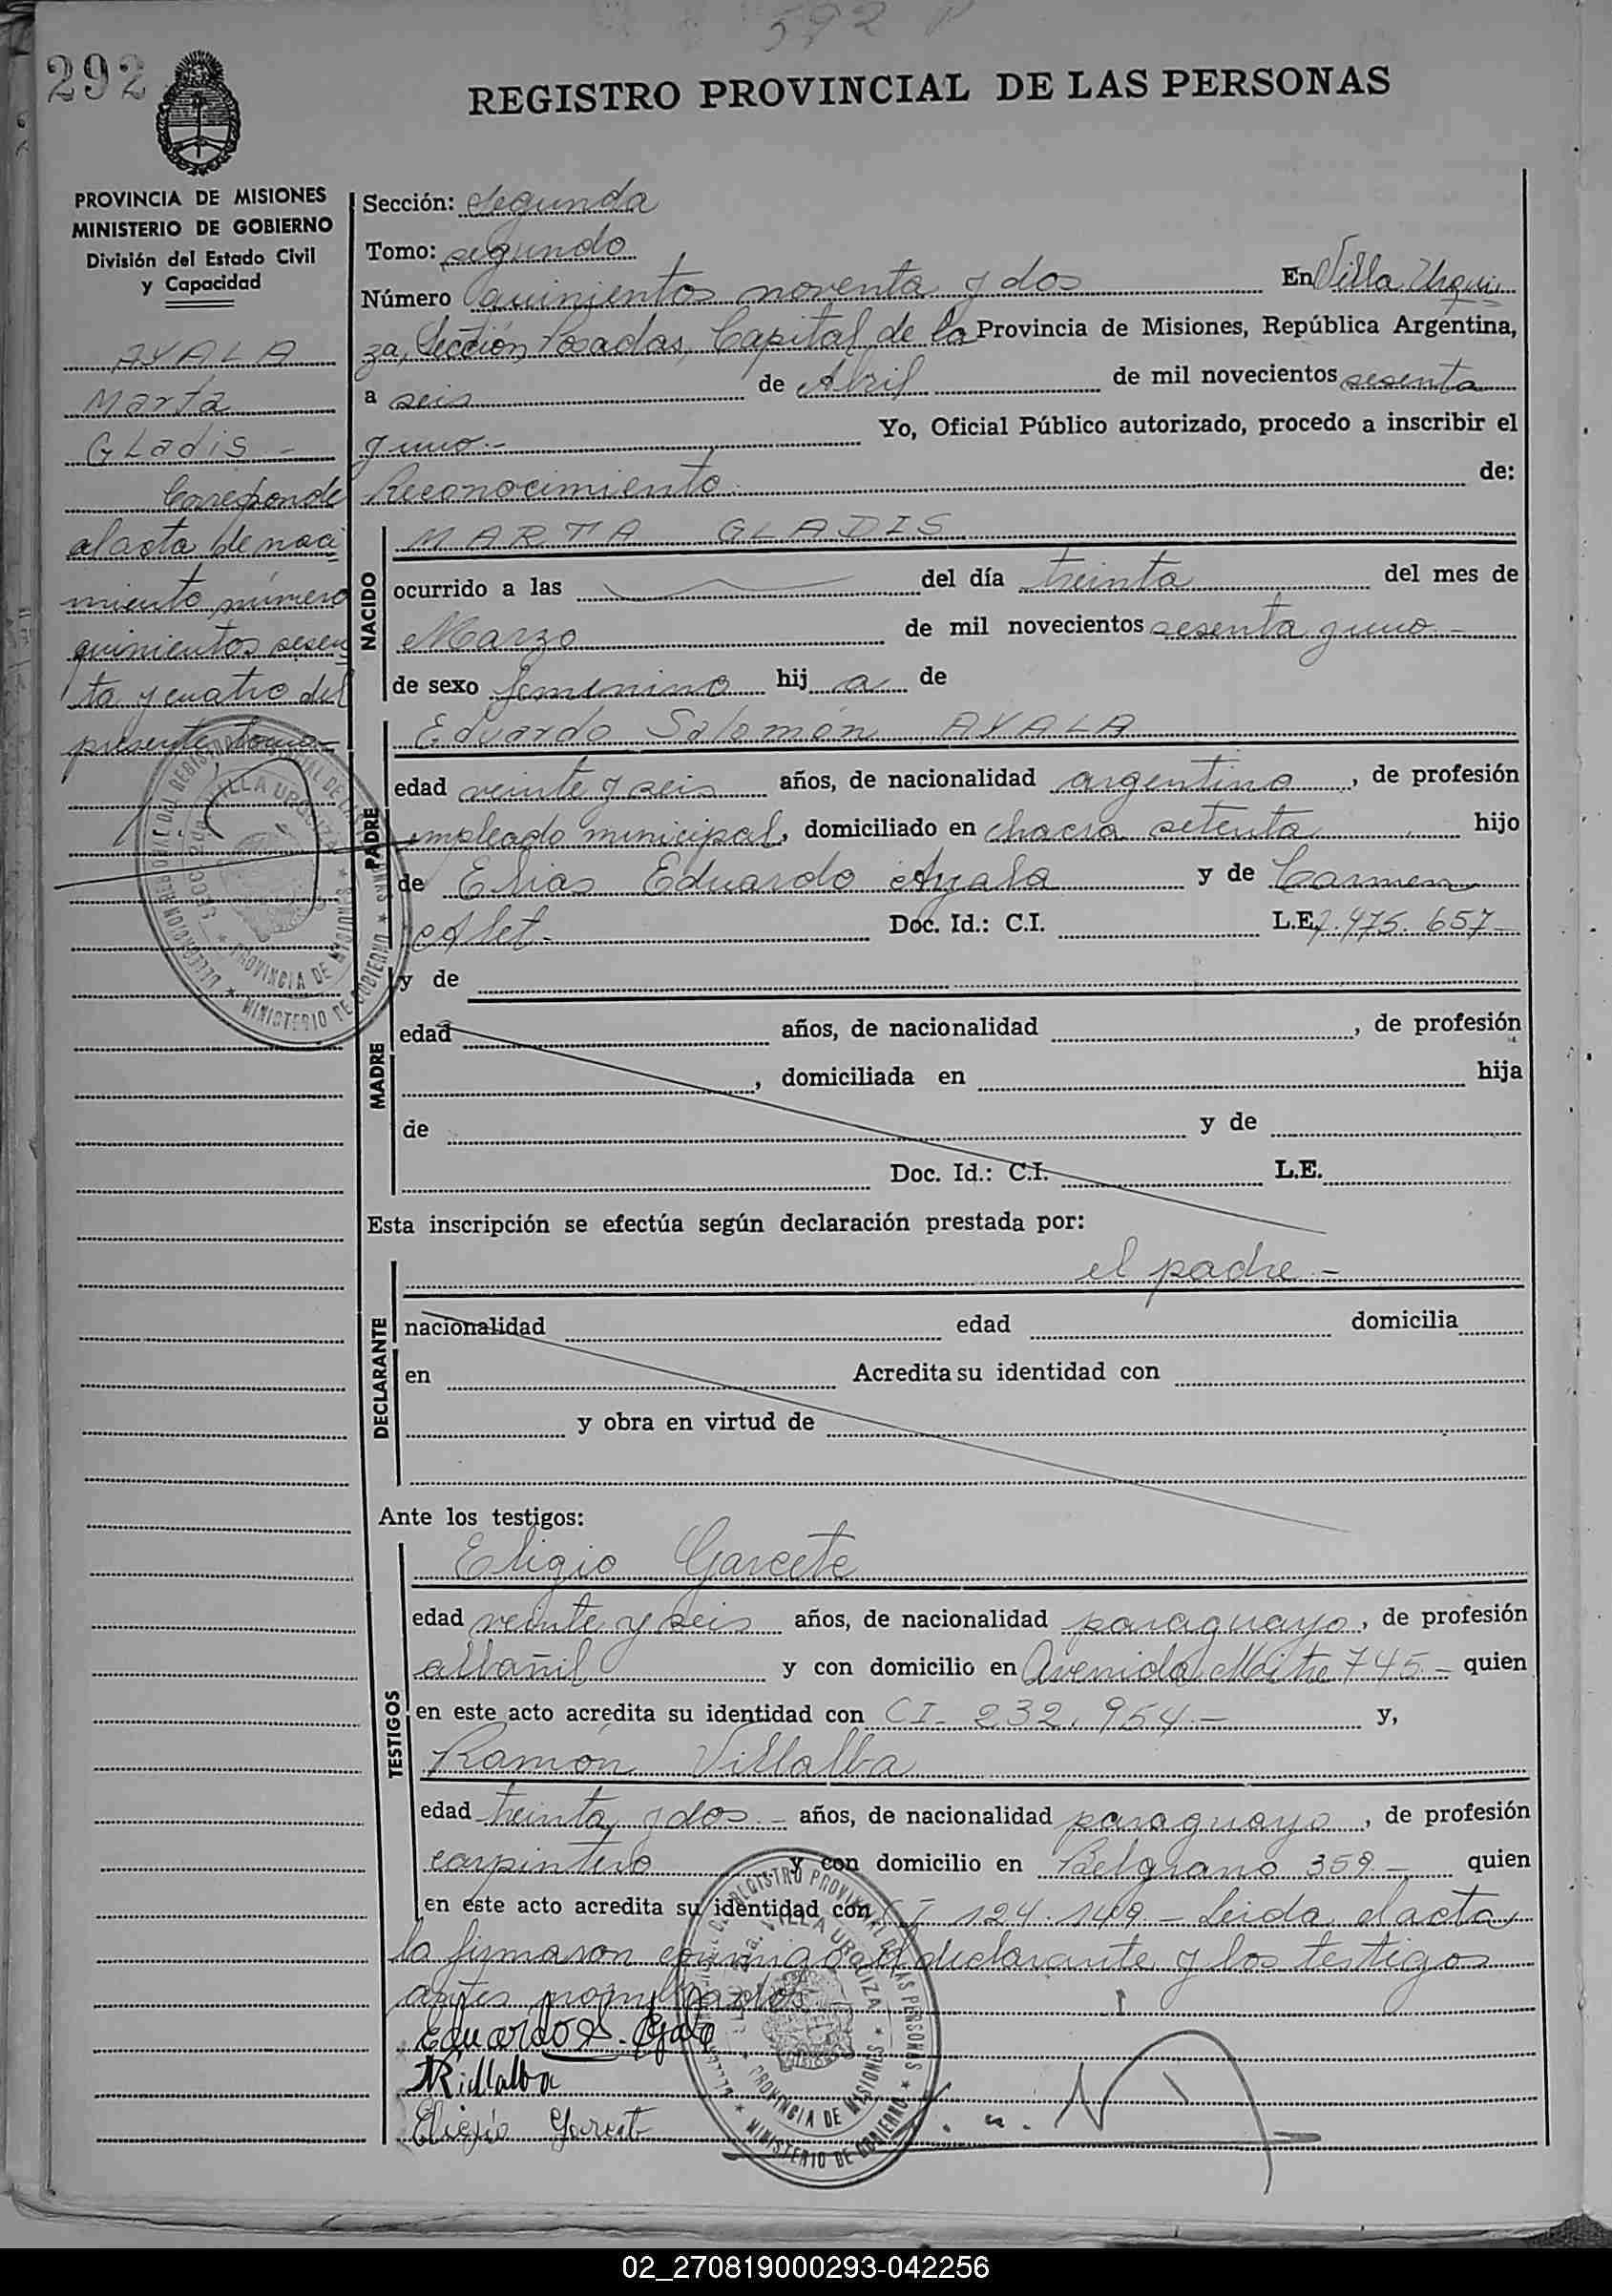 592 P
292
REGISTRO PROVINCIAL DE LAS PERSONAS
PROVINCIA DE MISIONES
MINISTERIO DE GOBIERNO
División del Estado Civil
y Capacidad
AYALA
Marta
Gladis -
Coresponde
al acta de naci
miento número
quinientos sesen
ta y cuatro del
presente tomo -
Sección: Segunda
Tomo: segundo
Número quinientos noventa y dos En Villa Urqui
za, Sección Posadas, Capital de la Provincia de Misiones, República Argentina,
a seis de Abril de mil novecientos sesenta
y uno.- Yo, Oficial Público autorizado, procedo a inscribir el
Reconocimiento de:
NACIDO
MARTA GLADIS
ocurrido a las del día treinta del mes de
Marzo de mil novecientos sesenta y uno -
de sexo femenino hij a de
PADRE
Eduardo Salomón AYALA
edad veinte y seis años, de nacionalidad argentino, de profesión
empleado municipal, domiciliado en chacra setenta hijo
de Elias Eduardo Ayala y de Carmen
Doc. Id.: C.I. L.E. 7.475.657 -
MADRE
y de
edad años, de nacionalidad , de profesión
, domiciliada en hija
de y de
Doc. Id.: C.I. L.E.
Esta inscripción se efectúa según declaración prestada por:
DECLARANTE
el padre -
nacionalidad edad domicilia
en Acredita su identidad con
y obra en virtud de
Ante los testigos:
TESTIGOS
Eligio Garcete
edad veinte y seis años, de nacionalidad paraguayo, de profesión
albañil y con domicilio en Avenida Mitre 745 - quien
en este acto acredita su identidad con CI - 232.954 - y,
Ramón Villalba
edad treinta y dos - años, de nacionalidad paraguayo, de profesión
carpintero y con domicilio en Belgrano 359 - quien
en este acto acredita su identidad con CI 124.149 - Leida el acta
la firmaron conmigo el declarante y los testigos
antes
Eduardo S. Ayala
RVillalba
Eligio Garcete
VILLA URQUIZA
PROVINCIA DE MISIONES
MINISTERIO DE GOBIERNO
02_270819000293-042256